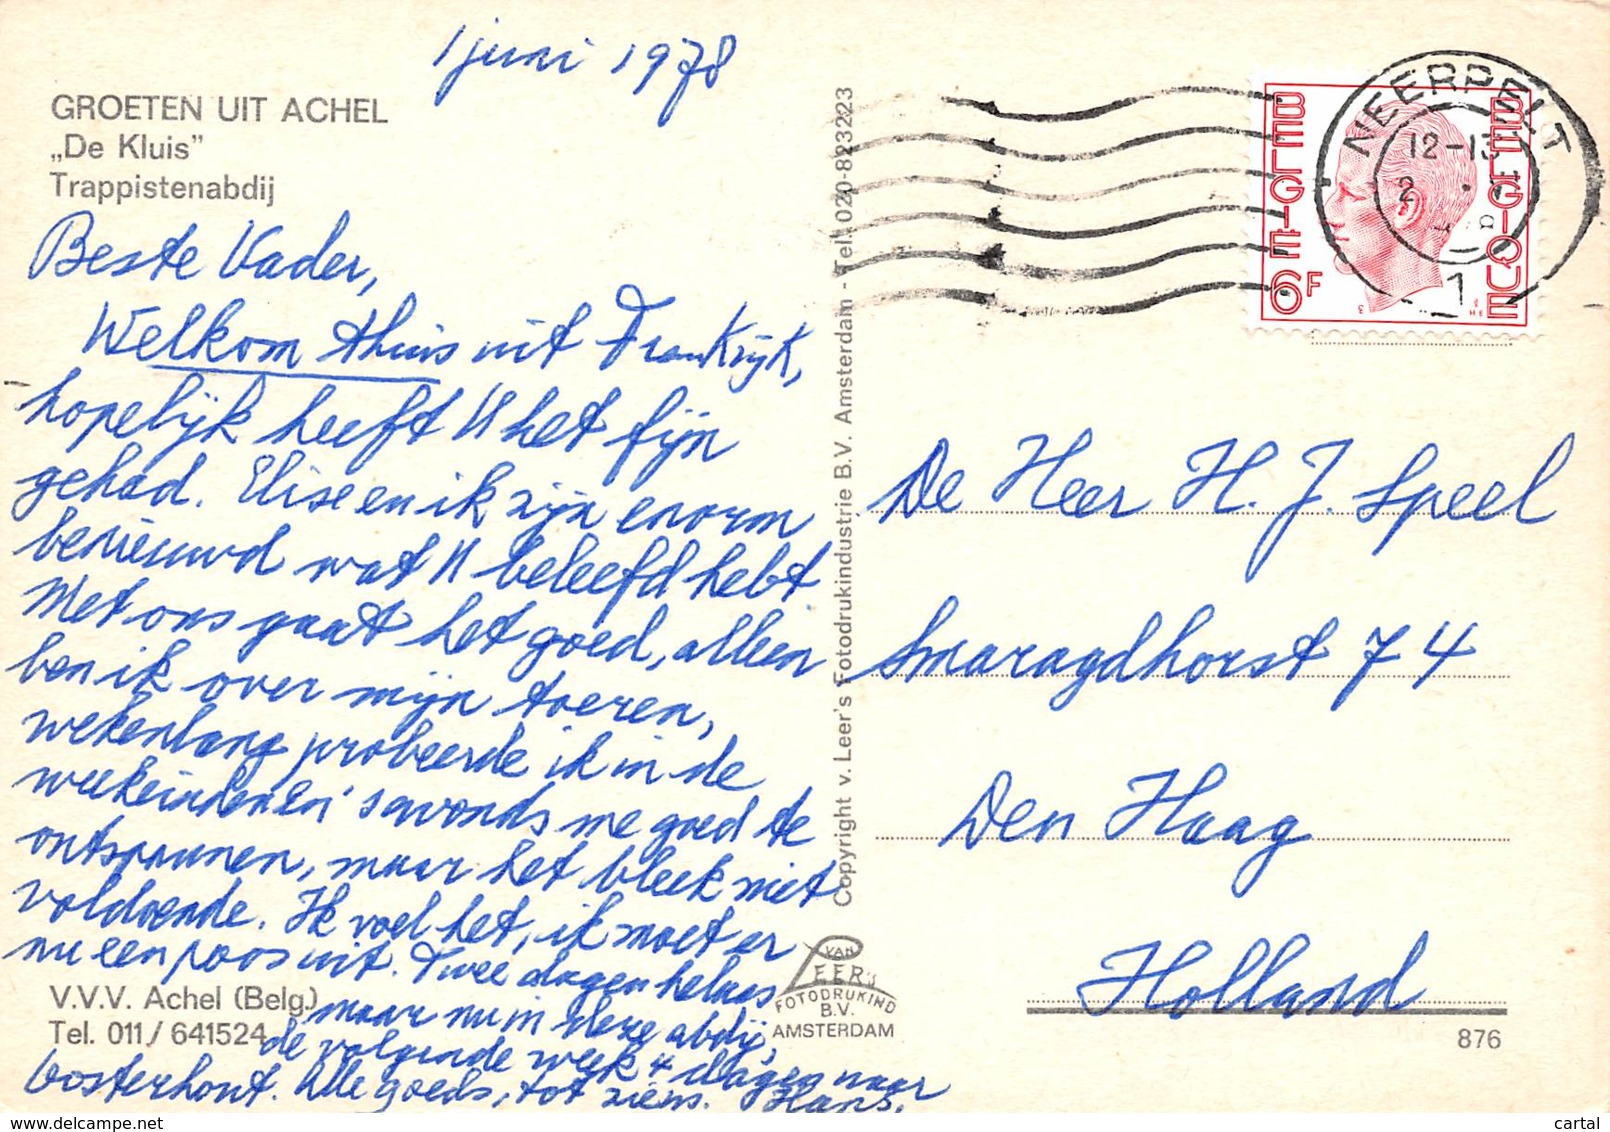 1 juni 1978
GROETEN UIT ACHEL
„De Kluis”
Trappistenabdij
Beste Vader,
Welkom thuis uit Frankrijk,
hopelijk heeft U het fijn
gehad. Elise en ik zijn enorm
benieuwd wat U beleefd hebt
Met ons gaat het goed, alleen
ben ik over mijn toeren,
wekenlang probeerde ik in de
weekeinden en 's avonds me goed te
ontspannen, maar het bleek niet
voldoende. Ik voel het, ik moet er
nu een poos uit. Twee dagen helaas
maar nu in deze abdij,
de volgende week 4 dagen naar
Oosterhout. Alle goeds, tot ziens. Hans.
V.V.V. Achel (Belg.)
Tel. 011/641524
Copyright v. Leer's Fotodrukindustrie B.V. Amsterdam - Tel. 020-823223
VAN
LEER'S
FOTODRUKIND
B.V.
AMSTERDAM
BELGIE 6F
BELGIQUE
NEERPELT
12-13
2
1
De Heer H. J. Speel
Smaragdhorst 74
Den Haag
Holland
876
cartal